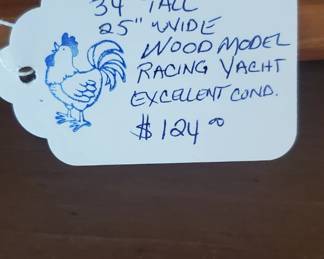 34" TALL
25" WIDE
WOOD MODEL
RACING YACHT
EXCELLENT COND.
$124.00